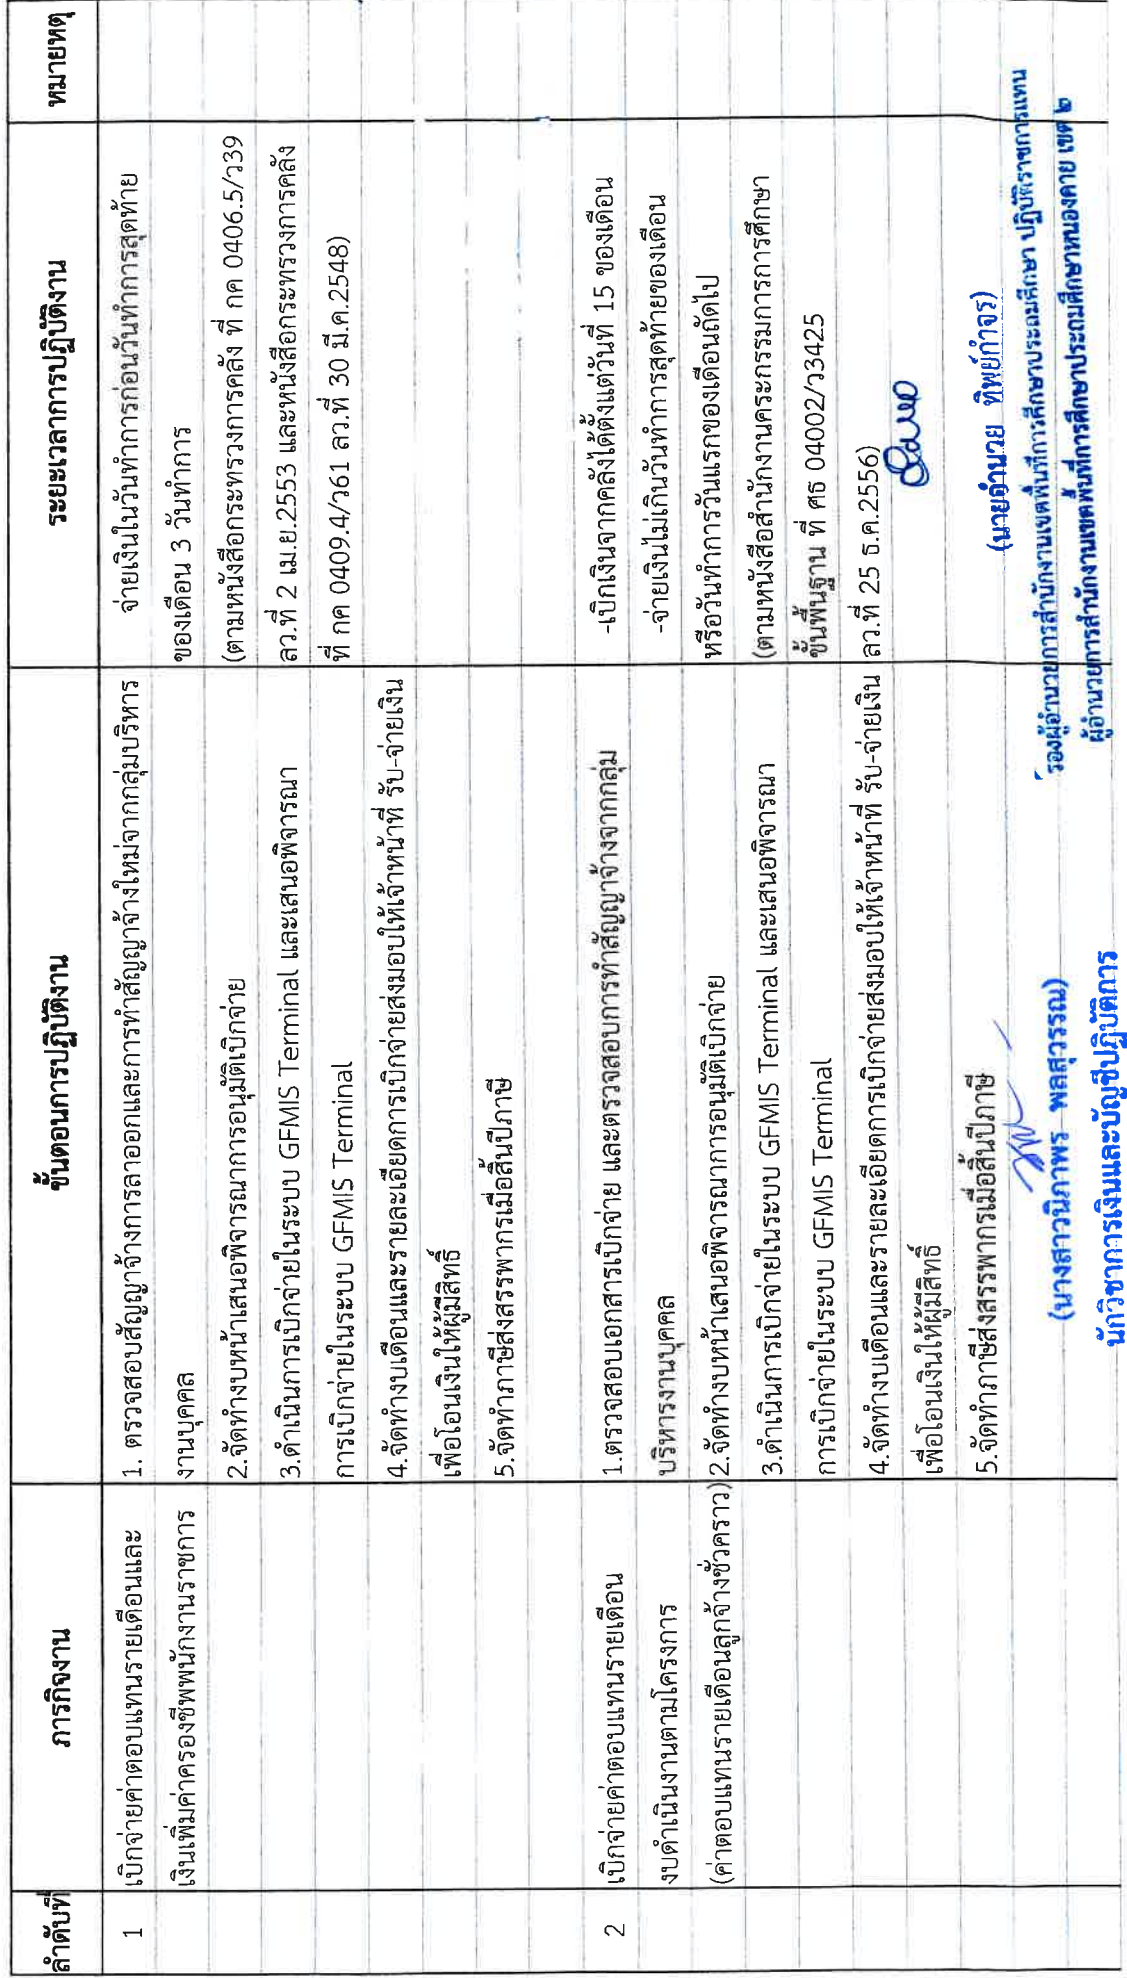 ลำดับที่ ภารกิจงาน ขั้นตอนการปฏิบัติงาน ระยะเวลาการปฏิบัติงาน หมายเหตุ
1 เบิกจ่ายค่าตอบแทนรายเดือนและ 1. ตรวจสอบสัญญาจ้างการลาออกและการทำสัญญาจ้างใหม่จากกลุ่มบริหาร จ่ายเงินในวันทำการก่อนวันทำการสุดท้าย
เงินเพิ่มค่าครองชีพพนักงานราชการ งานบุคคล ของเดือน 3 วันทำการ
2.จัดทำงบหน้าเสนอพิจารณาการอนุมัติเบิกจ่าย (ตามหนังสือกระทรวงการคลัง ที่ กค 0406.5/ว39
3.ดำเนินการเบิกจ่ายในระบบ GFMIS Terminal และเสนอพิจารณา ลว.ที่ 2 เม.ย.2553 และหนังสือกระทรวงการคลัง
การเบิกจ่ายในระบบ GFMIS Terminal ที่ กค 0409.4/ว61 ลว.ที่ 30 มี.ค.2548)
4.จัดทำงบเดือนและรายละเอียดการเบิกจ่ายส่งมอบให้เจ้าหน้าที่ รับ-จ่ายเงิน
เพื่อโอนเงินให้ผู้มีสิทธิ์
5.จัดทำภาษีส่งสรรพากรเมื่อสิ้นปีภาษี
2 เบิกจ่ายค่าตอบแทนรายเดือน 1.ตรวจสอบเอกสารเบิกจ่าย และตรวจสอบการทำสัญญาจ้างจากกลุ่ม -เบิกเงินจากคลังได้ตั้งแต่วันที่ 15 ของเดือน
งบดำเนินงานตามโครงการ บริหารงานบุคคล -จ่ายเงินไม่เกินวันทำการสุดท้ายของเดือน
(ค่าตอบแทนรายเดือนลูกจ้างชั่วคราว) 2.จัดทำงบหน้าเสนอพิจารณาการอนุมัติเบิกจ่าย หรือวันทำการวันแรกของเดือนถัดไป
3.ดำเนินการเบิกจ่ายในระบบ GFMIS Terminal และเสนอพิจารณา (ตามหนังสือสำนักงานคระกรรมการการศึกษา
การเบิกจ่ายในระบบ GFMIS Terminal ขั้นพื้นฐาน ที่ ศธ 04002/ว3425
4.จัดทำงบเดือนและรายละเอียดการเบิกจ่ายส่งมอบให้เจ้าหน้าที่ รับ-จ่ายเงิน ลว.ที่ 25 ธ.ค.2556)
เพื่อโอนเงินให้ผู้มีสิทธิ์
5.จัดทำภาษีส่งสรรพากรเมื่อสิ้นปีภาษี
(นายอำนวย ทิพย์กำจร)
รองผู้อำนวยการสำนักงานเขตพื้นที่การศึกษาประถมศึกษา ปฏิบัติราชการแทน
ผู้อำนวยการสำนักงานเขตพื้นที่การศึกษาประถมศึกษาหนองคาย เขต ๒
(นางสาวนิภาพร พลสุวรรณ)
นักวิชาการเงินและบัญชีปฏิบัติการ